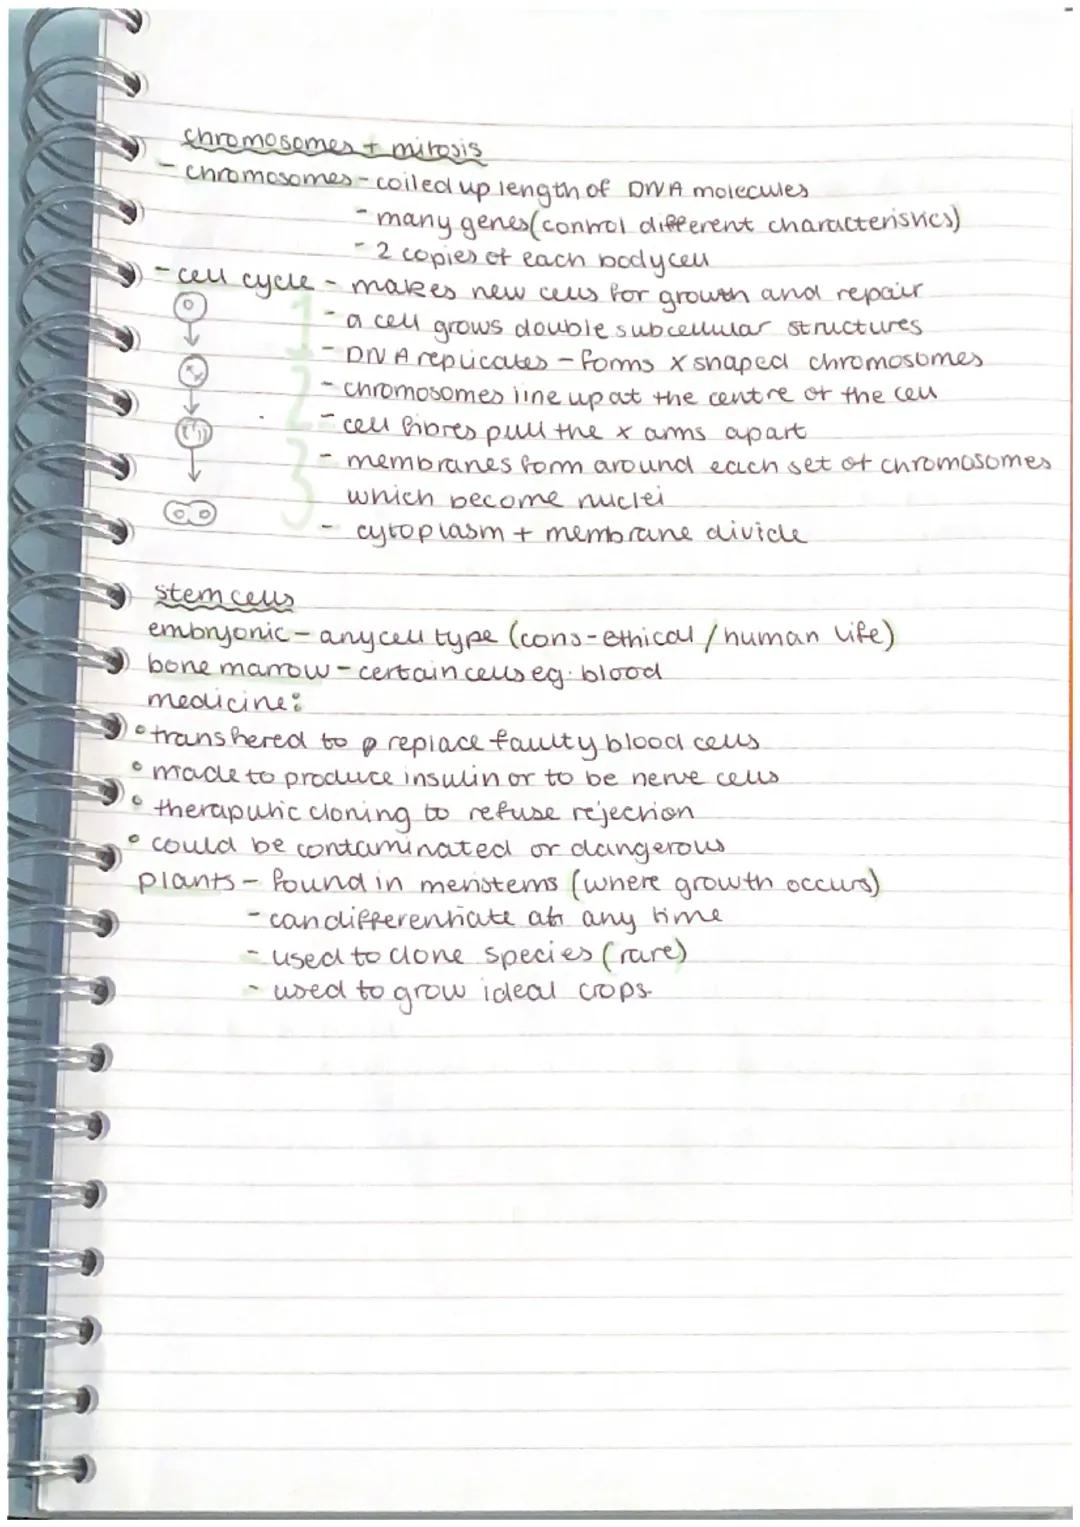 chromosomes + mitosis
- chromosomes - coiled up length of DNA molecules
- many genes (control different characteristics)
- 2 copies of each body cell
- cell cycle - makes new cells for growth and repair
1 - a cell grows double subcellular structures
- DNA replicates - forms x shaped chromosomes
2 - chromosomes line up at the centre of the cell
- cell fibres pull the x arms apart
3 - membranes form around each set of chromosomes
which become nuclei
- cytoplasm + membrane divide
stem cells
embryonic - any cell type (cons - ethical / human life)
bone marrow - certain cells eg. blood
medicine:
• transfered to replace faulty blood cells
• made to produce insulin or to be nerve cells
• theraputic cloning to refuse rejection
• could be contaminated or dangerous
plants - found in meristems (where growth occurs)
- can differentiate at any time
- used to clone species (rare)
- used to grow ideal crops.